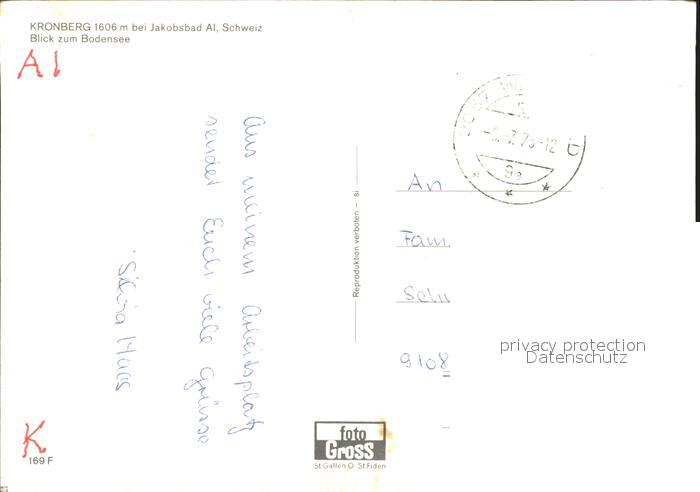 KRONBERG 1606 m bei Jakobsbad AI, Schweiz
Blick zum Bodensee
AI
Aus meinem Arbeitsplatz
sendet Euch viele Grüsse
Silvia Haas
Reproduktion verboten – si
An
Fam.
Sch
9108
privacy protection
Datenschutz
K
169 F
foto
Gross
St.Gallen O St.Fiden